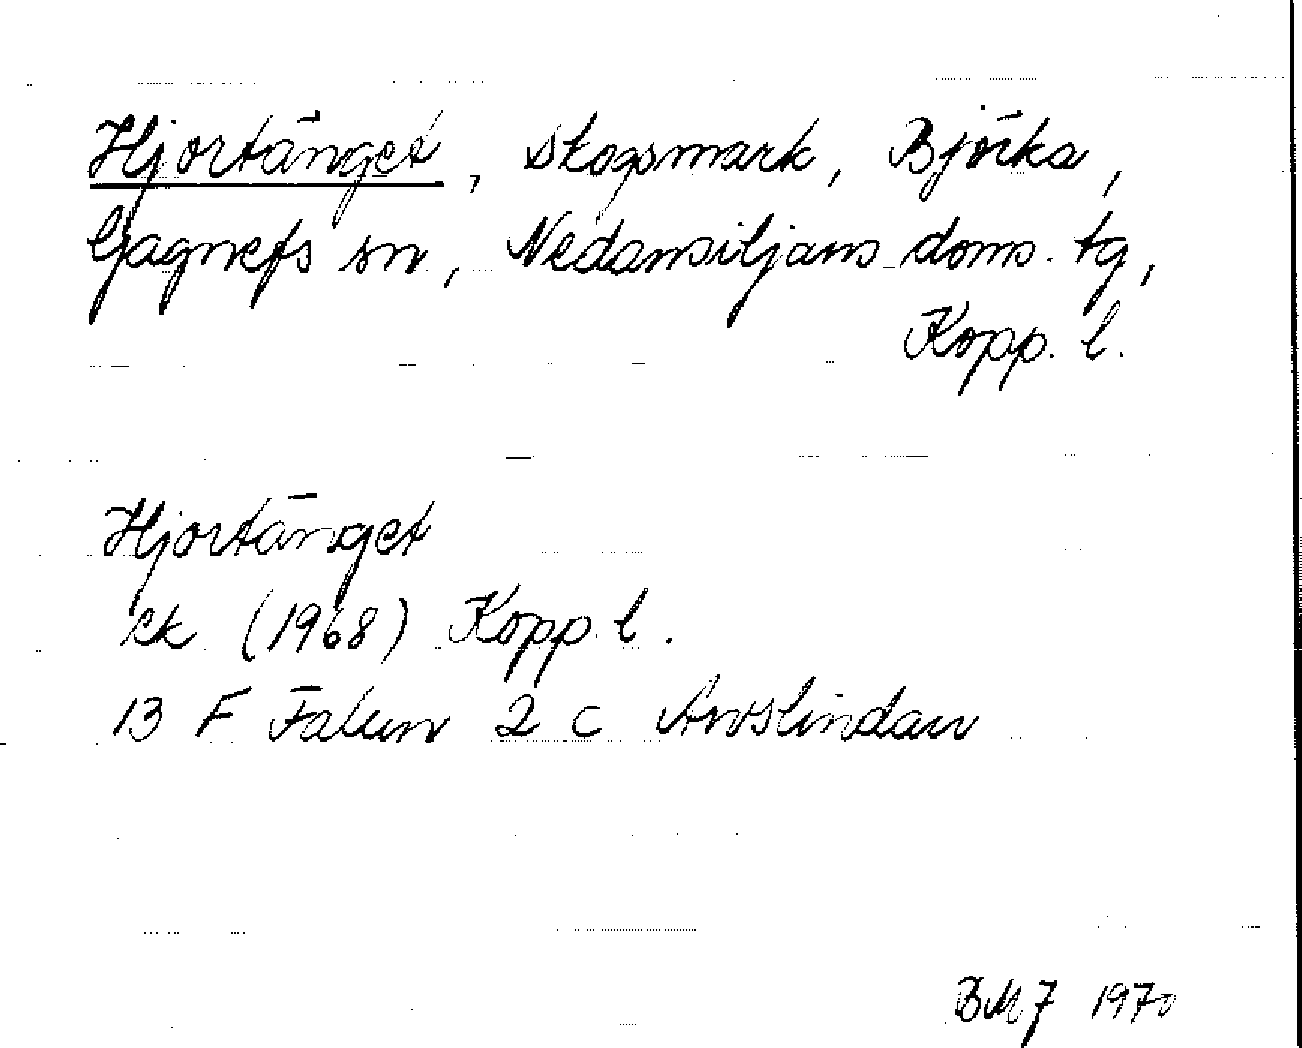 Hjortänget, skogsmark, Björka,
Gagnefs sn, Nedansiljans doms. tg,
Kopp. l.
Hjortänget
ek (1968) Kopp. l.
13 F Falun 2 c Arvslindan
BMJ 1970